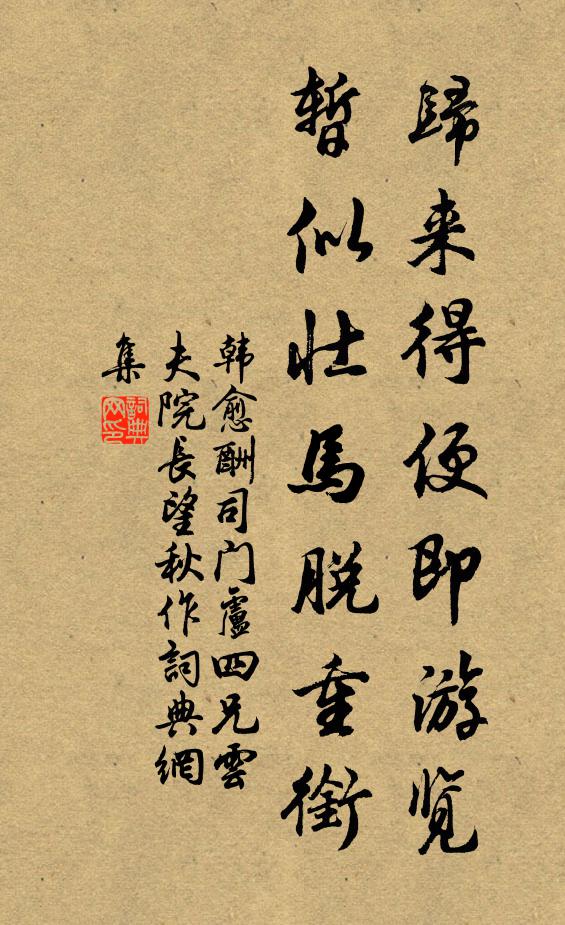 歸来得便即游览
暫似壮馬脱重銜
韩愈酬司门盧四兄雲
夫院長望秋作詞典網
集
詞典
网印